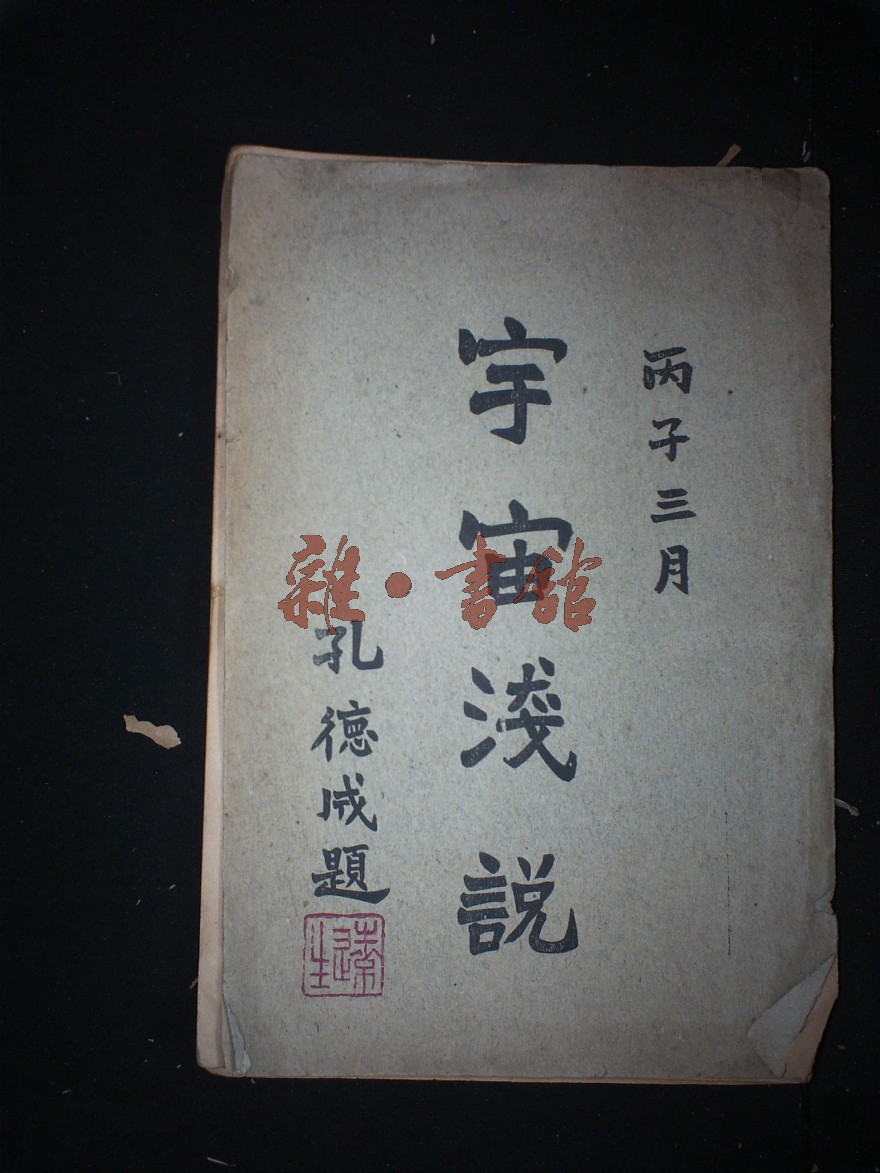 丙子三月
宇宙淺說
孔德成題
雜·書舘